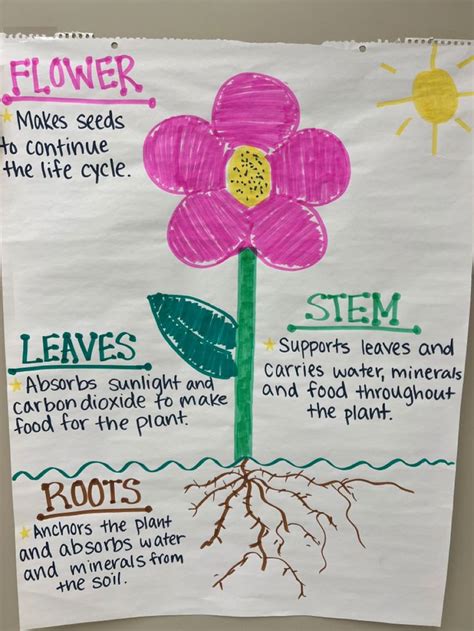 FLOWER
Makes seeds
to continue
the life cycle.
LEAVES
Absorbs sunlight and
carbon dioxide to make
food for the plant.
STEM
Supports leaves and
carries water, minerals
and food throughout
the plant.
ROOTS
Anchors the plant
and absorbs water
and minerals from
the soil.